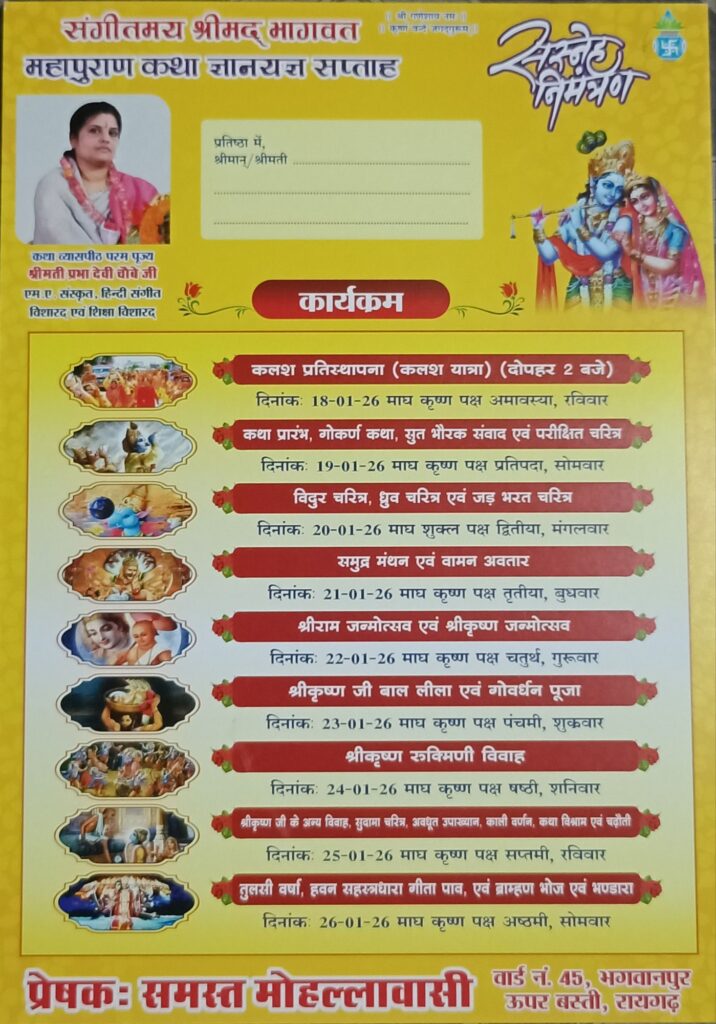 || श्री गणेशाय नमः ||
|| कृष्णं वन्दे जगद्गुरूम् ||
संगीतमय श्रीमद् भागवत
महापुराण कथा ज्ञानयज्ञ सप्ताह
सस्नेह
निमंत्रण
प्रतिष्ठा में,
श्रीमान्/श्रीमती
कथा व्यासपीठ परम पूज्य
श्रीमती प्रभा देवी चौबे जी
एम.ए. संस्कृत, हिन्दी संगीत
विशारद एवं शिक्षा विशारद्
कार्यक्रम
कलश प्रतिस्थापना (कलश यात्रा) (दोपहर 2 बजे)
दिनांकः 18-01-26 माघ कृष्ण पक्ष अमावस्या, रविवार
कथा प्रारंभ, गोकर्ण कथा, सुत भौरक संवाद एवं परीक्षित चरित्र
दिनांकः 19-01-26 माघ कृष्ण पक्ष प्रतिपदा, सोमवार
विदुर चरित्र, ध्रुव चरित्र एवं जड़ भरत चरित्र
दिनांकः 20-01-26 माघ शुक्ल पक्ष द्वितीया, मंगलवार
समुद्र मंथन एवं वामन अवतार
दिनांकः 21-01-26 माघ कृष्ण पक्ष तृतीया, बुधवार
श्रीराम जन्मोत्सव एवं श्रीकृष्ण जन्मोत्सव
दिनांकः 22-01-26 माघ कृष्ण पक्ष चतुर्थ, गुरूवार
श्रीकृष्ण जी बाल लीला एवं गोवर्धन पूजा
दिनांकः 23-01-26 माघ कृष्ण पक्ष पंचमी, शुक्रवार
श्रीकृष्ण रुक्मिणी विवाह
दिनांकः 24-01-26 माघ कृष्ण पक्ष षष्ठी, शनिवार
श्रीकृष्ण जी के अन्य विवाह, सुदामा चरित्र, अवधूत उपाख्यान, काली वर्णन, कथा विश्राम एवं चढ़ौती
दिनांकः 25-01-26 माघ कृष्ण पक्ष सप्तमी, रविवार
तुलसी वर्षा, हवन सहस्त्रधारा गीता पाव, एवं ब्राम्हण भोज एवं भण्डारा
दिनांकः 26-01-26 माघ कृष्ण पक्ष अष्ठमी, सोमवार
प्रेषकः समस्त मोहल्लावासी
वार्ड नं. 45, भगवानपुर
ऊपर बस्ती, रायगढ़